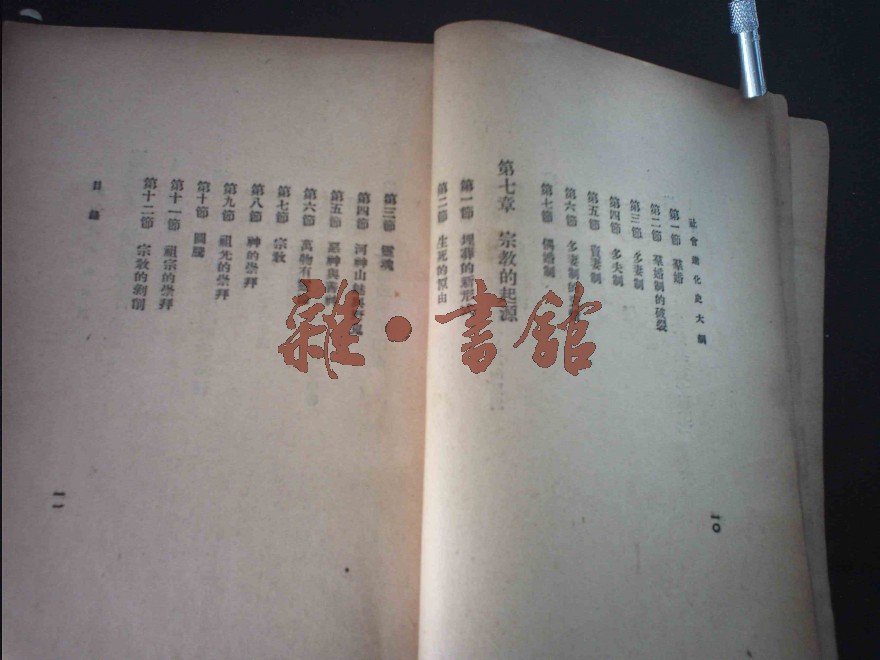 社會進化史大綱
第一節 羣婚
第二節 羣婚制的破裂
第三節 多妻制
第四節 多夫制
第五節 賣妻制
第六節 多妻制的
第七節 偶婚制
第七章 宗教的起源
第一節 埋葬的
第二節 生死的原由
一〇
第三節 靈魂
第四節 河神山
第五節 惡神與
第六節 萬物有
第七節 宗教
第八節 神的崇拜
第九節 祖先的崇拜
第十節 圖騰
第十一節 祖宗的崇拜
第十二節 宗教的剥削
目錄
一一
雜·書館